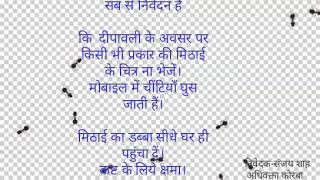 सब से निवेदन है
कि दीपावली के अवसर पर
किसी भी प्रकार की मिठाई
के चित्र ना भेजें।
मोबाइल में चींटियाँ घुस
जाती हैं।
मिठाई का डब्बा सीधे घर ही
पहुंचा दें।
कष्ट के लिये क्षमा।
निवेदक-संजय शाह
अधिवक्ता कोरबा